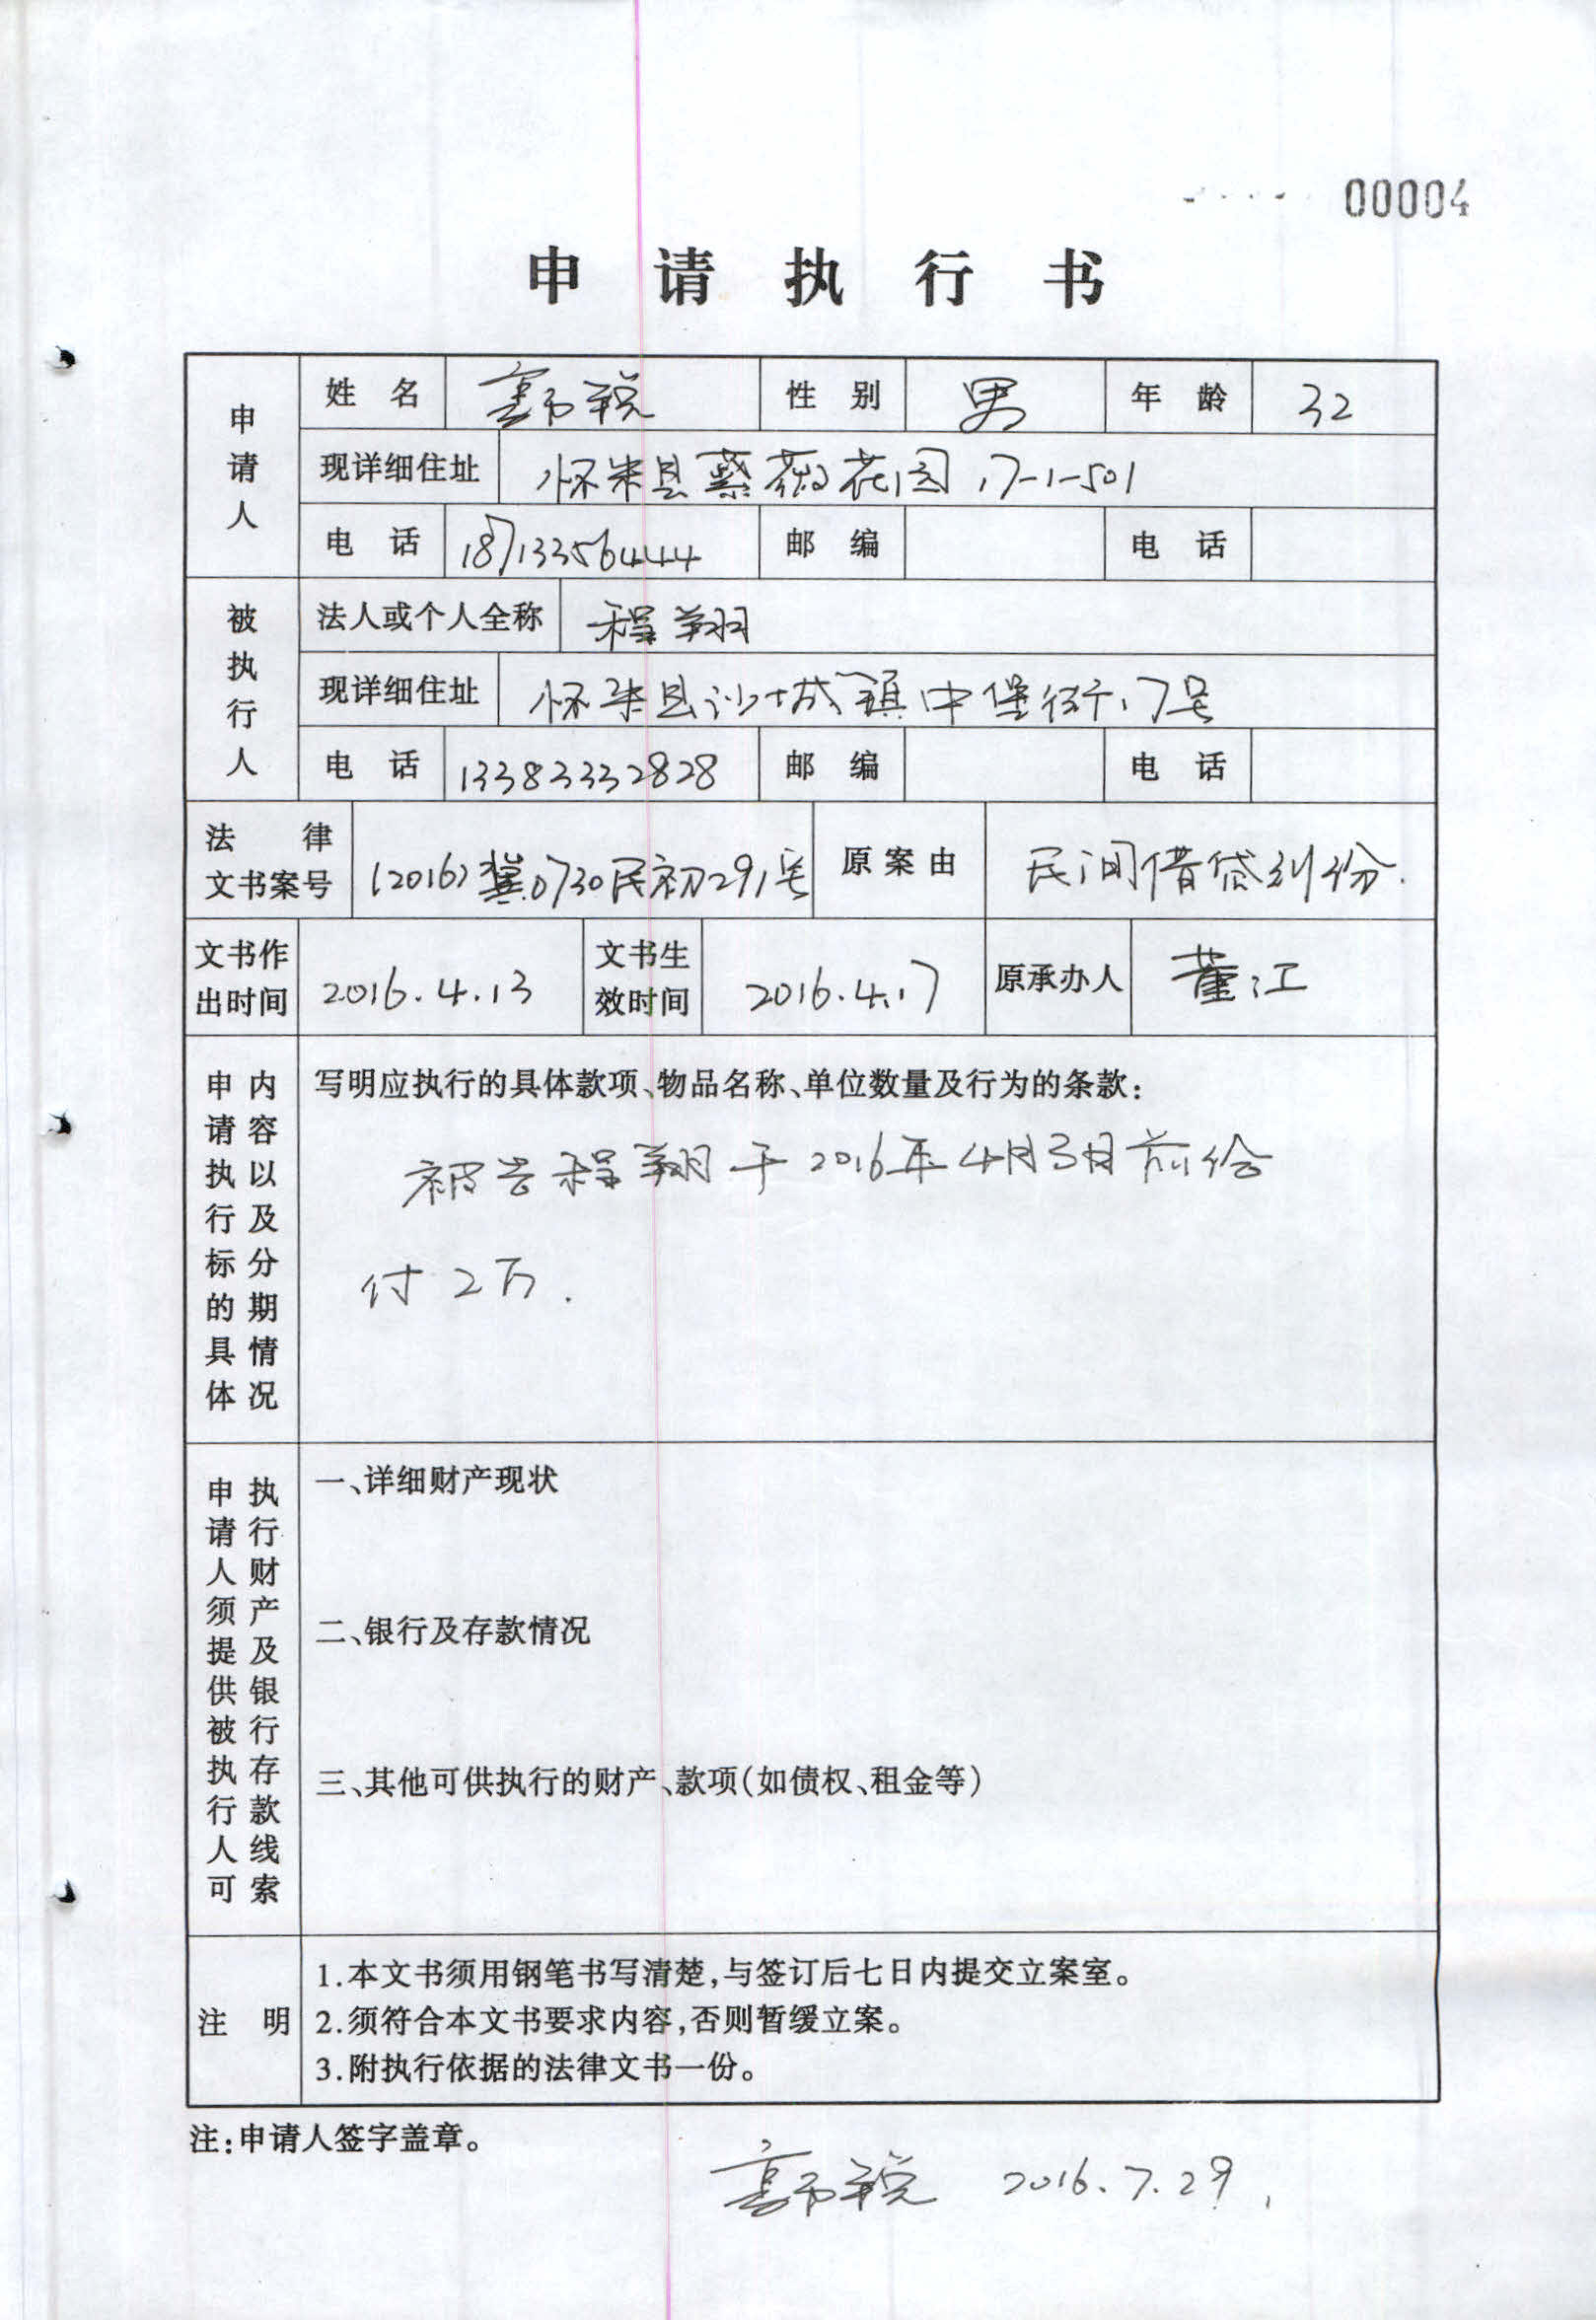 00004
申请执行书
申请人 姓名 性别 男 年龄 32
现详细住址 怀来县紫薇花园17-1-501
电话 18713356444 邮编 电话
被执行人 法人或个人全称 程翔
现详细住址 怀来县沙城镇中堡街17号
电话 13383332828 邮编 电话
法律文书案号 (2016)冀0730民初291号 原案由 民间借贷纠份.
文书作出时间 2016.4.13 文书生效时间 2016.4.17 原承办人 董江
申请执行标的具体内容以及分期情况
写明应执行的具体款项、物品名称、单位数量及行为的条款:
被告程翔于2016年4月3日前给
付2万.
申请人须提供被执行人可执行财产及银行存款线索
一、详细财产现状
二、银行及存款情况
三、其他可供执行的财产、款项(如债权、租金等)
注明
1.本文书须用钢笔书写清楚,与签订后七日内提交立案室。
2.须符合本文书要求内容,否则暂缓立案。
3.附执行依据的法律文书一份。
注:申请人签字盖章。
2016.7.29